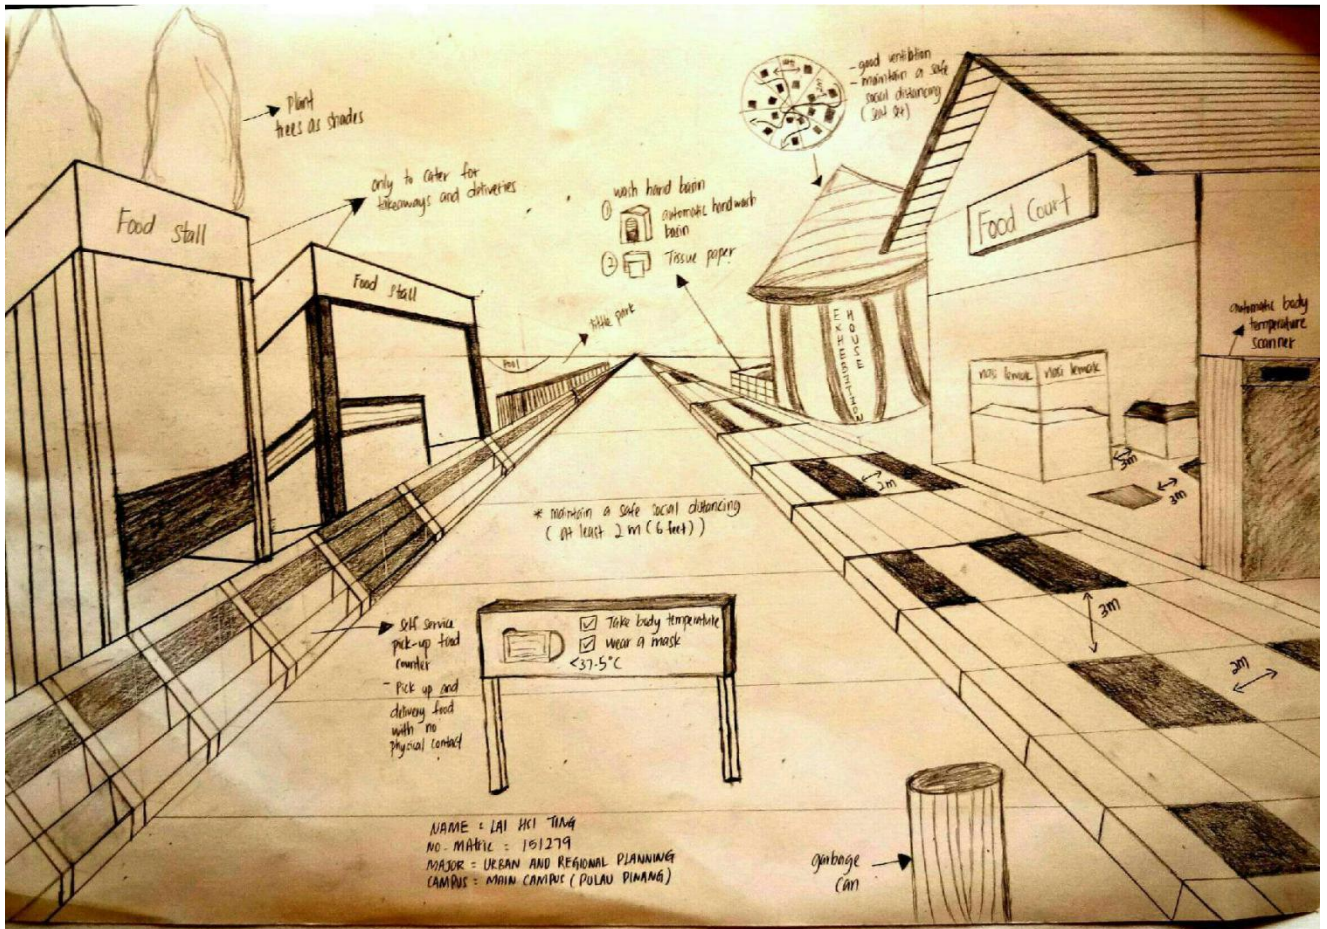 plant
trees as shades
only to cater for
takeaways and deliveries
Food Stall
Food Stall
wash hand basin
① automatic handwash
basin
② Tissue paper
- good ventilation
- maintain a safe
social distancing
little park
EXHEBITION
HOUSE
Food Court
nasi lemak nasi lemak
automatic body
temperature
scanner
3m
3m
2m
* maintain a safe social distancing
( at least 2 m (6 feet) )
3m
2m
self service
pick-up food
counter
- Pick up and
delivery food
with no
physical contact
☑ Take body temperature
☑ wear a mask
<37.5°C
NAME : LAI HSI TING
NO. MATRIC : 151279
MAJOR : URBAN AND REGIONAL PLANNING
CAMPUS : MAIN CAMPUS ( PULAU PINANG )
garbage
can